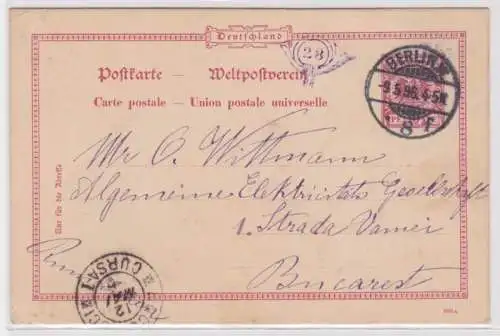 Deutschland
28
Postkarte — Weltpostverein
Carte postale — Union postale universelle
BERLIN, W.
-9.5.96. 4-5N.
* 8 f
Nur für die Adresse
Mr O. Wittmann
Algemeine Elektricitäts Gesellschaft
1. Strada Vamei
Bucarest
CURSA I
12
MAI